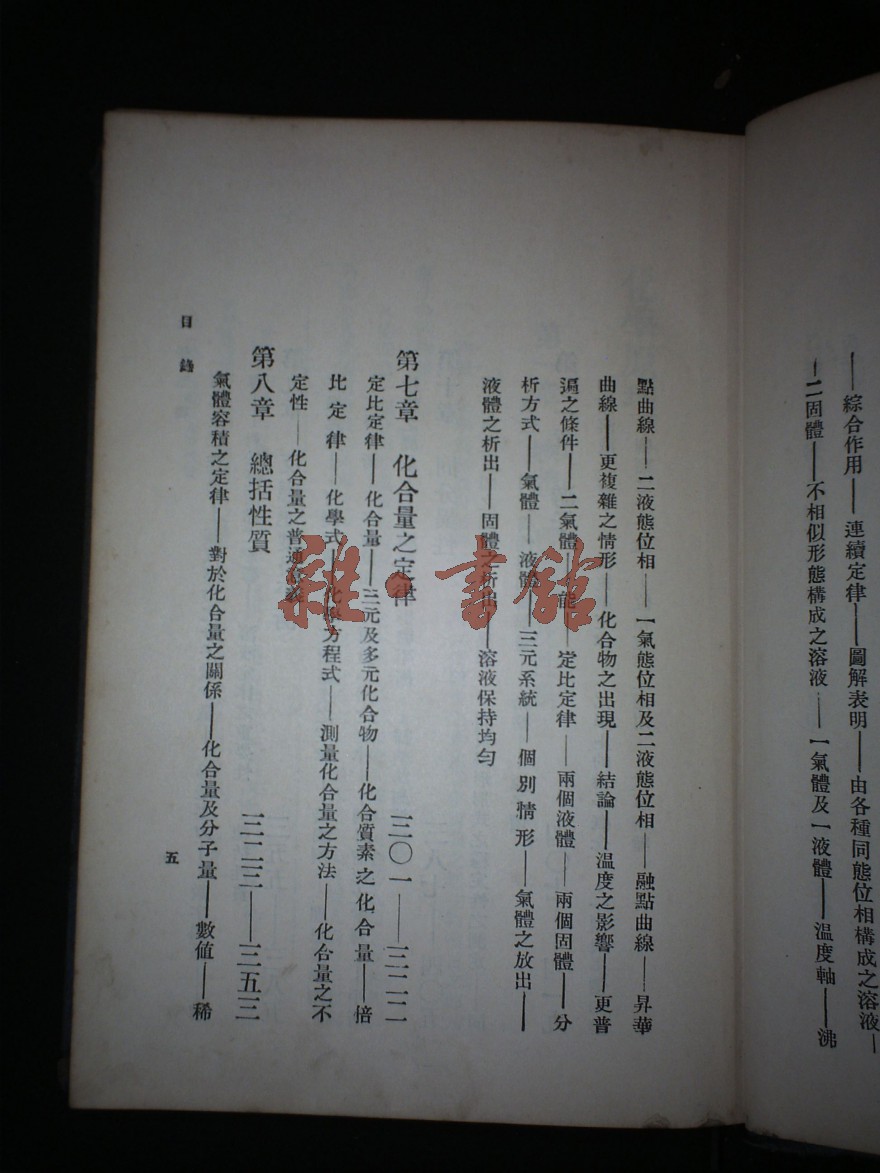 ——綜合作用——連續定律——圖解表明——由各種同態位相構成之溶液—
—二固體——不相似形態構成之溶液——一氣體及一液體——溫度軸——沸
點曲線——二液態位相——一氣態位相及二液態位相——融點曲線——昇華
曲線——更複雜之情形——化合物之出現——結論——溫度之影響——更普
遍之條件——二氣體——能——定比定律——兩個液體——兩個固體——分
析方式——氣體——液體——三元系統——個別情形——氣體之放出——
液體之析出——固體之析出——溶液保持均勻
第七章 化合量之定律 三〇一——三二二
定比定律——化合量——三元及多元化合物——化合質素之化合量——倍
比定律——化學式——化學方程式——測量化合量之方法——化合量之不
定性——化合量之普通意義
第八章 總括性質 三二三——三五三
氣體容積之定律——對於化合量之關係——化合量及分子量——數値——稀
目錄
五
雜·書館